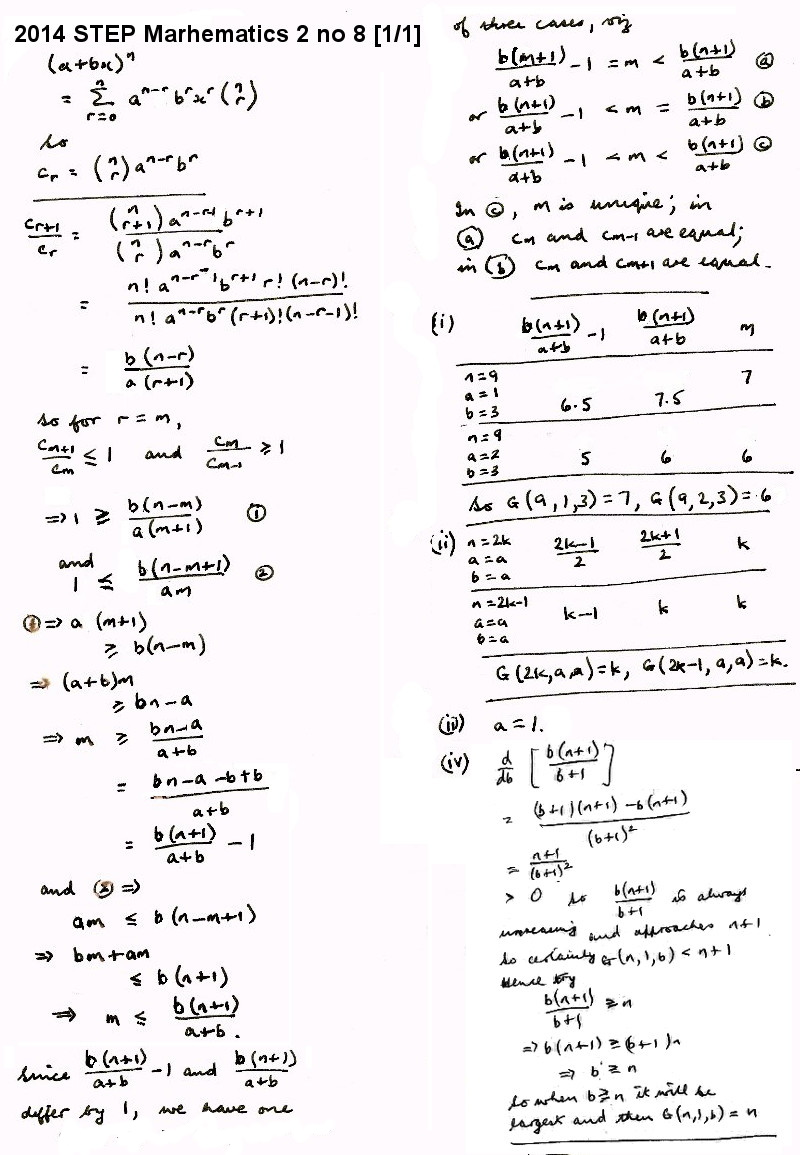 2014 STEP Marhematics 2 no 8 [1/1]
(a+bx)^n
= Σ_{r=0}^{n} a^{n-r} b^r x^r (n r)
So
c_r = (n r) a^{n-r} b^r
c_{r+1}/c_r = (n r+1) a^{n-r-1} b^{r+1} / (n r) a^{n-r} b^r
= n! a^{n-r-1} b^{r+1} r! (n-r)! / n! a^{n-r} b^r (r+1)! (n-r-1)!
= b(n-r) / a(r+1)
So for r = m,
c_{m+1}/c_m ≤ 1 and c_m/c_{m-1} ≥ 1
⇒ 1 ≥ b(n-m) / a(m+1) ①
and
1 ≤ b(n-m+1) / am ②
① ⇒ a (m+1)
≥ b(n-m)
⇒ (a+b)m
≥ bn-a
⇒ m ≥ bn-a / a+b
= bn-a-b+b / a+b
= b(n+1) / a+b - 1
and ② ⇒
am ≤ b(n-m+1)
⇒ bm+am
≤ b(n+1)
⇒ m ≤ b(n+1) / a+b .
Since b(n+1) / a+b - 1 and b(n+1) / a+b
differ by 1, we have one
of three cases, viz
b(m+1) / a+b - 1 = m < b(n+1) / a+b ⓐ
or b(n+1) / a+b - 1 < m = b(n+1) / a+b ⓑ
or b(n+1) / a+b - 1 < m < b(n+1) / a+b ⓒ
In ⓒ, m is unique; in
ⓐ c_m and c_{m-1} are equal;
in ⓑ c_m and c_{m+1} are equal.
(i) b(n+1) / a+b - 1 b(n+1) / a+b m
n=9
a=1 7
b=3 6.5 7.5
n=9
a=2 5 6 6
b=3
So G(9,1,3)=7, G(9,2,3)=6
(ii) n=2k 2k-1 / 2 2k+1 / 2 k
a=a
b=a
n=2k-1 k-1 k k
a=a
b=a
G(2k,a,a)=k, G(2k-1,a,a)=k.
(iii) a=1.
(iv) d/db [ b(n+1) / b+1 ]
= (b+1)(n+1) - b(n+1) / (b+1)²
= n+1 / (b+1)²
> 0 so b(n+1) / b+1 is always
increasing and approaches n+1
So certainly G(n,1,b) < n+1
Hence try
b(n+1) / b+1 ≥ n
⇒ b(n+1) ≥ (b+1)n
⇒ b ≥ n
So when b ≥ n it will be
largest and then G(n,1,b) = n